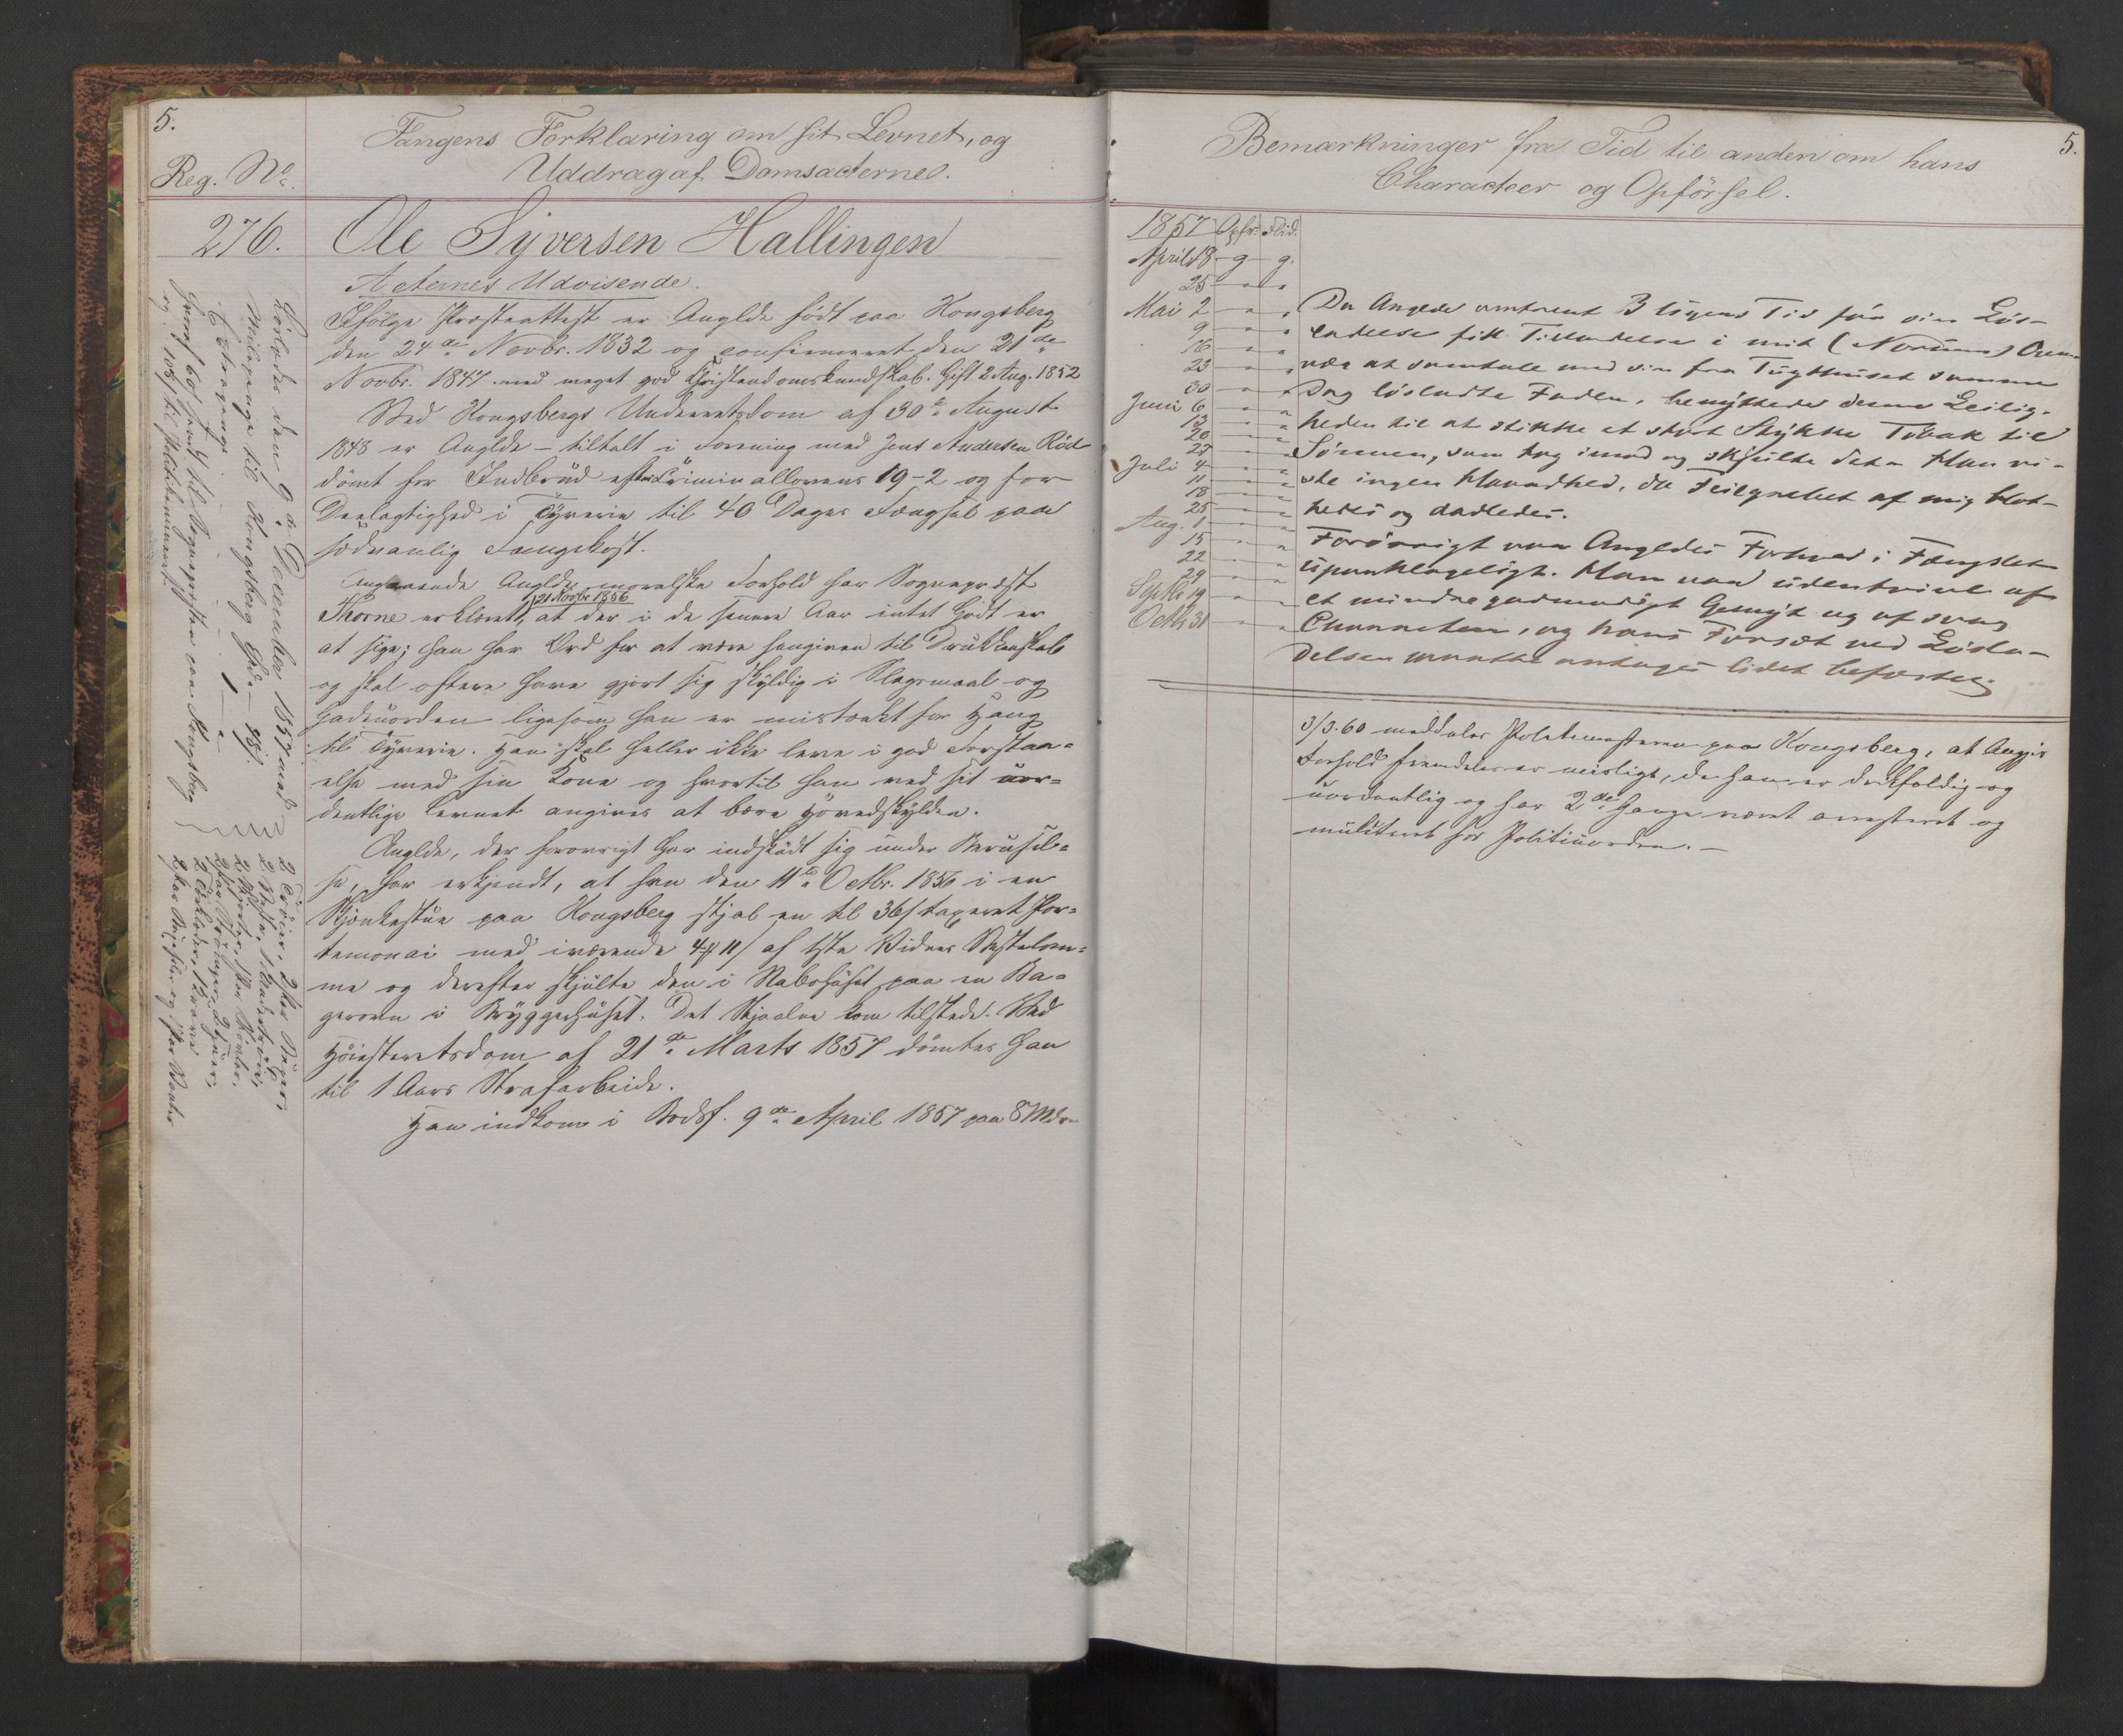 5.
Reg. No.
Fangens Forklaring om sit Levnet, og
Uddrag af Domsacterne.
276.
Ole Syversen Hallingen
Acternes Udvisende.
Ifølge Præsteattest er Anglde født paa Kongsberg
den 24de Novbr. 1832 og confirmeret den 21de
Novbr. 1847 med meget god Christendomskundskab. Gift 2 Aug. 1852
Ved Kongsbergs Underretsdom af 30te August
1848 er Anglde - tiltalt i Forening med Jens Andersen Röd
dömt for Indbrud efter Criminallovens 19-2 og for
Deelagtighed i Tyverie til 40 Dages Fængsel paa
sædvanlig Fangekost.
Angaaende Angldes moralske Forhold har Sognepræst
Thorne erklæret, 21 Novbr 1856 at der i de senere Aar intet Godt er
at sige; han har Ord for at være hengiven til Drukkenskab
og skal oftere have gjort sig skyldig i Slagsmaal og
Gadeuorden ligesom han er mistænkt for Hang
til Tyverie. Han skal heller ikke leve i god Forstaa-
else med sin Kone og hvortil han ved sit uor-
dentlige Levnet angives at bære Hovedskylden.
Anglde, der forøvrigt har indskudt sig under Beruselse-
se, har erkjendt, at han den 11te Octbr. 1856 i en
Skjænkestue paa Kongsberg stjal en til 36 s taxeret Por-
temonai med iværende 4 11 s af 1ste Vidnes Vestelom-
me og derefter skjulte den i Nabohuset paa en Ba-
gerovn i Bryggerhuset. Det Stjaalne kom tilstede. Ved
Høiesteretsdom af 21de Marts 1857 dömtes han
til 1 Aars Strafarbeide.
Han indkom i Bodsf. 9de April 1857 paa 8 Mdr
Løslades den 9de December 1857 med
Milepenge til Kongsberg
Extrapenge
hvoraf 60 s sendt til Sognepresten paa Kongsberg
og 108 s til Politikammeret.
2 Trøier, 2 Par Buxer,
2 Veste, 1 Undertrøie,
2 Skjorter, 1 Par Støvler,
2 Tørklæder, 1 Krave
Bemærkninger fra Tid til anden om hans
Characteer og Opførsel.
5.
1857 Opfr. Flid.
April 18 g g.
25 " "
Mai 2 " "
9 " "
16 " "
23 " "
30 " "
Juni 6 " "
13 " "
20 " "
27 " "
Juli 4 " "
11 " "
18 " "
25 " "
Aug. 1 " "
15 " "
22 " "
29 " "
Septbr 19 " "
Octbr 31 " "
Da Anglde omtrent 3 Ugers Tid før sin Løs-
ladelse fik Tilladelse i mit (Norums) Overs
vær at samtale med sin fra Tugthuset samme
Dag løsladte Fader, benyttede denne Leilig-
heden til at stikke et stort Stykke Tobak til
Sønnen, som tog imod og skjulte det. Han vi-
ste ingen Haardhed, da Feilgrebet af mig
hedes og dadledes.
Forøvrigt var Angldes Forhold i Fængslet
upaaklageligt. Han var udentvivl af
et mindre godmodigt Gemyt og af svag
Characteer, og hans Forsæt ved Løsla-
delsen maatte antages lidet befæstet.
3/3.60 meddeler Politimesteren paa Kongsberg, at Angjs
Forhold fremdeles er misligt, da han er drikfældig og
uordentlig og har 2de Gange været arresteret og
mulkteret for Politiuorden. —